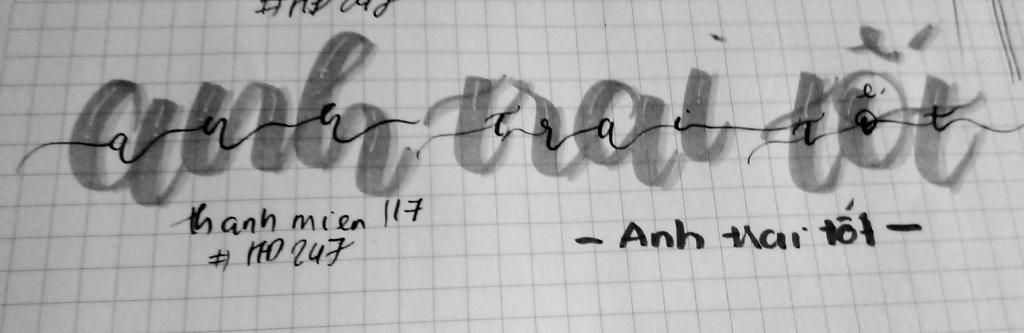 #HD 247
anh trai tốt
anh trai tốt
thanh mien 117
# HD 247
- Anh trai tốt -